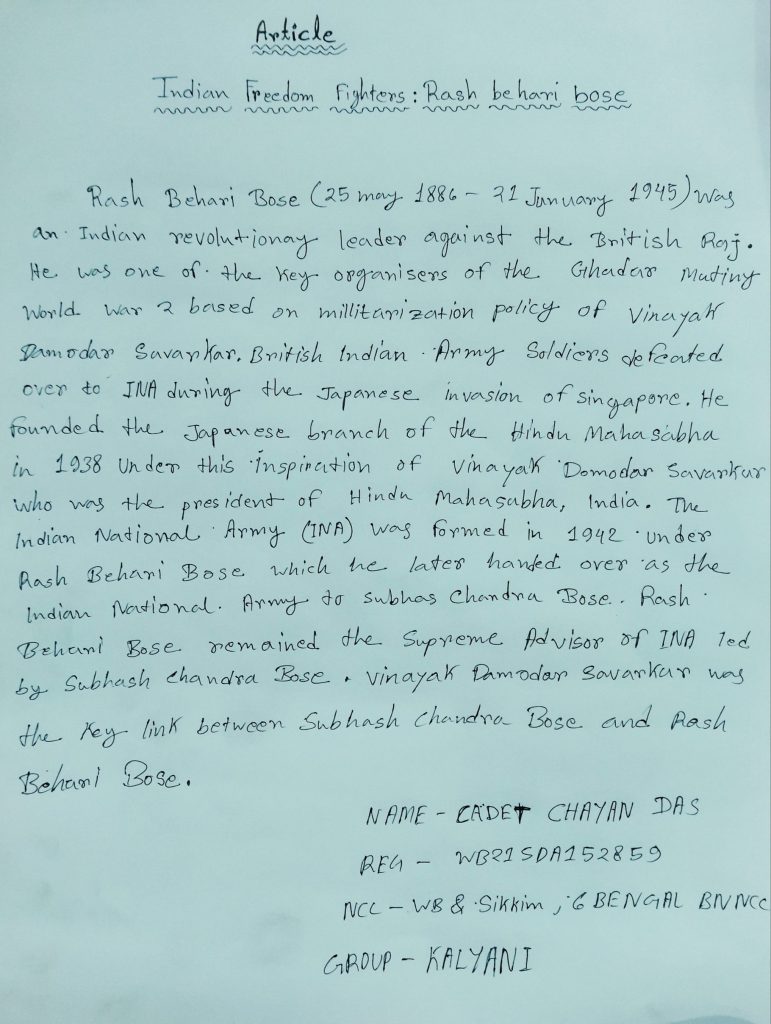 Article
Indian Freedom Fighters : Rash behari bose
Rash Behari Bose (25 may 1886 - 21 January 1945) was
an Indian revolutionay leader against the British Raj.
He was one of the key organisers of the Ghadar Mutiny
World War 2 based on millitarization policy of Vinayak
Damodar Savarkar. British Indian Army Soldiers defeated
over to INA during the Japanese invasion of singapore. He
founded the Japanese branch of the Hindu Mahasabha
in 1938 Under this inspiration of Vinayak Domodar Savarkur
who was the president of Hindu Mahasubha, India. The
Indian National Army (INA) was formed in 1942 under
Rash Behari Bose which he later handed over as the
Indian National Army to subhas Chandra Bose. Rash
Behari Bose remained the Supreme Advisor of INA led
by Subhash Chandra Bose. Vinayak Damodar Savarkur was
the key link between Subhash Chandra Bose and Rash
Behari Bose.
NAME - CADET CHAYAN DAS
REG - WB21SDA152859
NCC - WB & Sikkim, 6 BENGAL BN NCC
GROUP - KALYANI